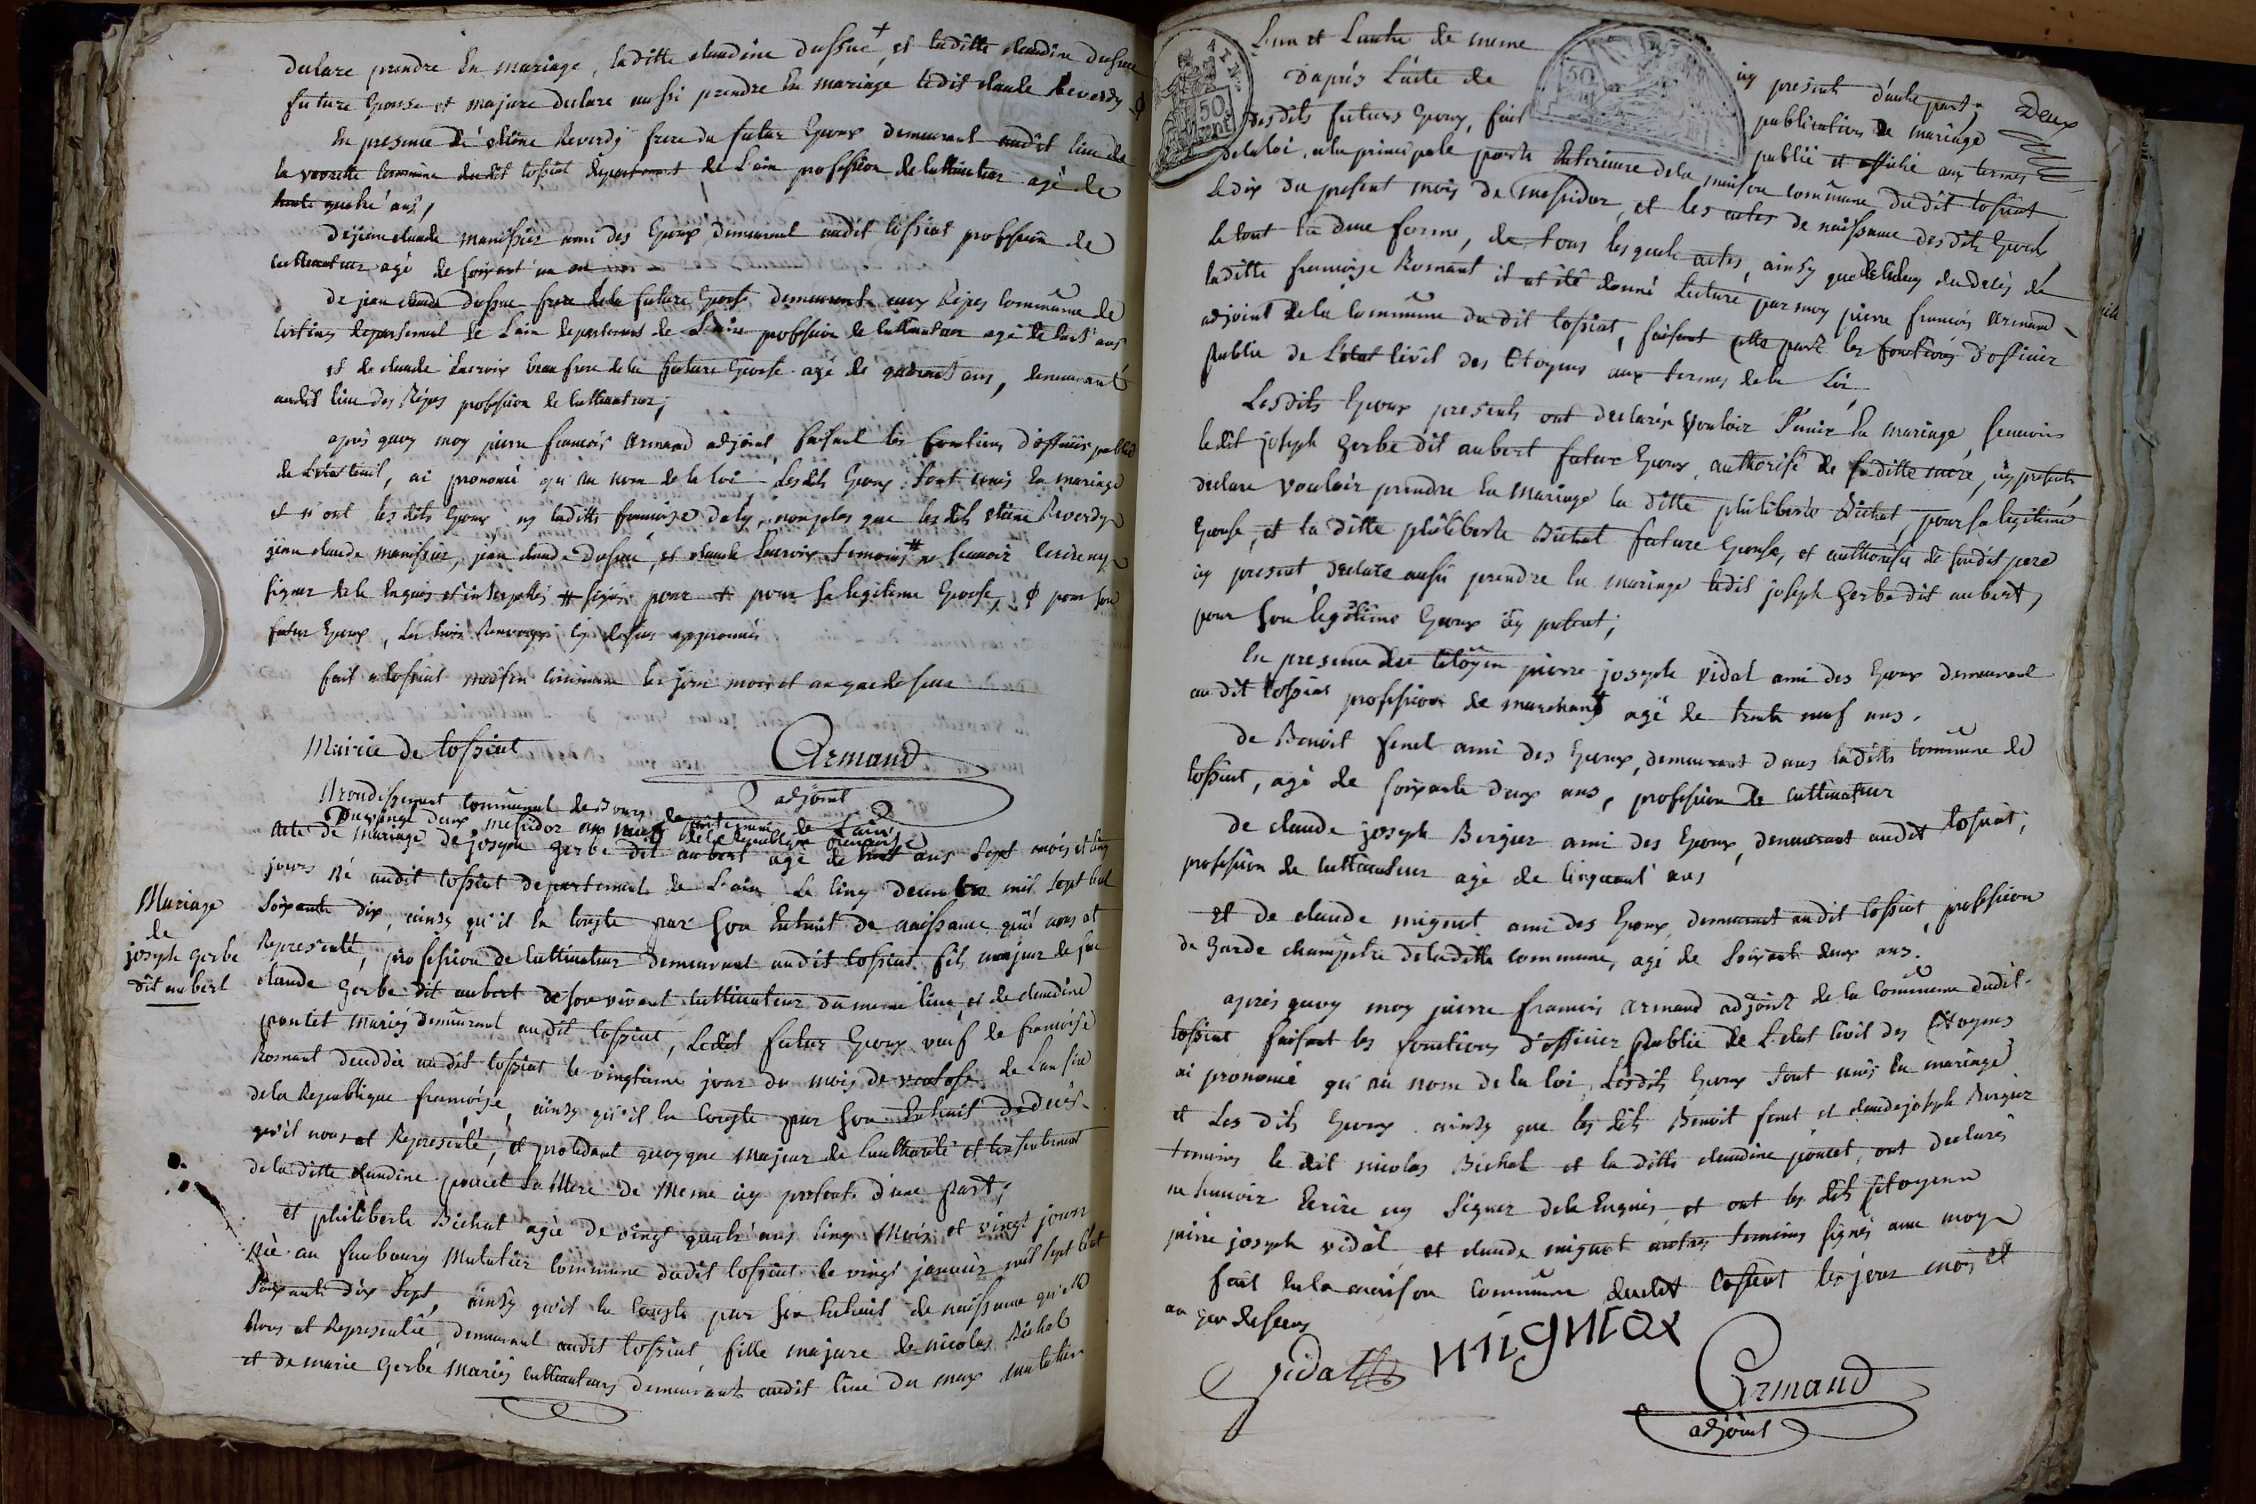 declare prendre En mariage, laditte claudine dussuc +, et laditte claudine dussuc
future Epouse et majure declare aussi prendre En mariage ledit claude Reverdy ϕ
En presence de étiene Reverdy frere du futur Epoux demeurant audit lieu de
la commune dudit tossiat departement de L'ain profession de cultivateur agé de
trente quatre ans,
De jean claude manissier ami des Epoux demeurant audit tossiat profession de
cultivateur agé de soixant un ans
de jean claude dussuc frere de la future Epouse demeurant aux Rippes commune de
certines departement de Lain profession de cultivateur agé de ans
et de claude Lacroix beau frere de la future Epouse agé de quarant ans, demeurant
audit lieu des Rippes profession de cultivateur,
apres quoy moy pierre francois Armand adjoint faisant les fonctions d'officier public
de Letat civil, ai prononcé qu'au nom de la loi Lesdits Epoux sont unis En mariage
et n'ont lesdits Epoux ny laditte francoise daly, non plus que lesdits étiene Reverdy
jean claude manissier, jean claude dussuc, et claude Lacroix temoins # scavoir Ecrire ny
signer de le Enquis et interpellés # pour + pour sa legitime Epouse, ϕ pour son
futur Epoux, Les trois Renvoys cy dessus approuvés
fait a tossiat maison commune les jour mois et an que dessus
Mairie de tossiat
Armand
adjoint
Arrondissement communal de Bourg departement de Lain
Du vingt deux messidor an neuf de la Republique francaise
Acte de Mariage de joseph Gerbe dit aubert agé de trent ans sept mois et cinq
jours Né audit tossiat departement de L'ain Le cinq decembre mil sept cent
soixante dix, ainsy qu'il En conste par son Extrait de naissance qu'il nous at
Representé, profession de cultivateur demeurant audit tossiat fils majeur de feu
claude Gerbe dit aubert de son vivant cultivateur du meme lieu, et de claudine
poncet Mariés demeurant audit tossiat, Ledit futur Epoux veuf de francoise
Romant decedée audit tossiat le vingtieme jour du mois de ventose de L'an
de la Republique francoise, ainsy qu'il En conste par son Extrait de deces
qu'il nous at Representé, et procedant quoyque majeur de Lauthorité et consentement
de la ditte claudine poncet Sa Mere de Meme icy presente d'une part,
et philiberte Bichat agée de vingt quatre ans cinq Mois et vingt jours
Née au faubourg Mulatier Commune dudit tossiat le vingt janvier mil sept cent
soixante dix sept, ainsy qu'il En conste par son Extrait de naissance qu'elle
Nous at Representé, demeurant audit tossiat, fille majure de nicolas Bichat
et de marie Gerbe Mariés cultivateurs demeurants audit lieu du
Mariage
de
joseph Gerbe
dit aubert
L'un et Lautre de meme icy presents d'autre part; Deux
D'après L'acte de publication de mariage
desdits futurs Epoux, fait publié et affiché aux termes
de la loi, a la principale porte Exterieure de la maison commune dudit tossiat
le dix du present mois de messidor, et les actes de naissance desdits Epoux
le tout En due forme, de tous lesquels actes, ainsy que de celuy du deces de
laditte francoise Romant il at été donné Lecture par moy pierre francois Armand
adjoint de la commune dudit tossiat, faisant cette part les fonctions d'officier
public de L'etat civil des citoyens aux termes de la Loi,
Lesdits Epoux presents ont declarés vouloir S'unir En mariage, scavoir
ledit joseph Gerbe dit aubert futur Epoux authorisé de saditte mere, icy presente,
declare vouloir prendre En Mariage la ditte philiberte Bichat, pour sa legitime
Epouse, et la ditte philiberte Bichat future Epouse, et authorisée de sondit pere
icy present, declare aussi prendre En mariage ledit joseph Gerbe dit aubert,
pour son legitime Epoux icy present;
En presence du citoyen pierre joseph vidal ami des Epoux demeurant
audit tossiat profession de marchant agé de trente neuf ans.
de Benoit fenet ami des Epoux, demeurant dans laditte commune de
tossiat, agé de soixante deux ans, profession de cultivateur
de claude joseph Bergier ami des Epoux, demeurant audit tossiat,
profession de cultivateur agé de cinquant ans
et de claude mignot ami des Epoux demeurant audit tossiat, profession
de Garde champetre de laditte commune, agé de soixante deux ans.
apres quoy moy pierre francois Armand adjoint de la commune dudit
tossiat faisant les fonctions d'officier public de L'etat civil des Citoyens
ai prononcé qu'au nom de la loi, Lesdits Epoux sont unis En mariage
et Lesdits Epoux ainsy que lesdits Benoit fenet et claude joseph Bergier
temoins le dit nicolas Bichat et la ditte claudine poncet, ont declarés
ne scavoir Ecrire ny Signer de le Enquis, et ont lesdits citoyens
pierre joseph vidal et claude mignot autres temoins signés avec moy
fait En la maison commune dudit tossiat les jour mois et
an que dessus
Vidal migniox
Armand
adjoint